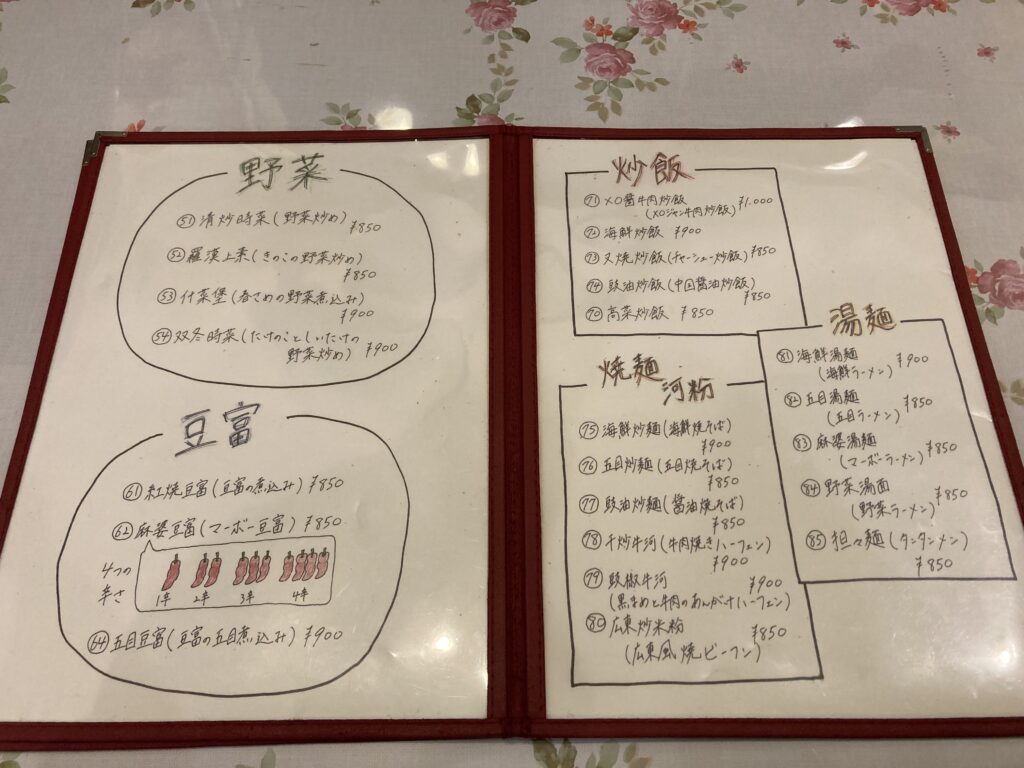 野菜
51 清炒時菜(野菜炒め)
¥850
52 羅漢上素(きのこの野菜炒め)
¥850
53 什菜堡(春さめの野菜煮込み)
¥900
54 双冬時菜(たけのことしいたけの
野菜炒め) ¥900
豆富
61 紅焼豆富(豆富の煮込み) ¥850
62 麻婆豆富(マーボー豆富) ¥850
4つの
辛さ
1辛 2辛 3辛 4辛
64 五目豆富(豆富の五目煮込み) ¥900
炒飯
71 XO醤牛肉炒飯
(XOジャン牛肉炒飯) ¥1.000
72 海鮮炒飯 ¥900
73 叉焼炒飯(チャーシュー炒飯) ¥850
74 豉油炒飯(中国醤油炒飯)
¥850
70 高菜炒飯 ¥850
焼麺
河粉
75 海鮮炒麺(海鮮焼そば)
¥900
76 五目炒麺(五目焼そば)
¥850
77 豉油炒麺(醤油焼そば)
¥850
78 干炒牛河(牛肉焼きハーフェン)
¥900
79 豉椒牛河 ¥900
(黒まめと牛肉のあんかけハーフェン)
80 広東炒米粉 ¥850
(広東風焼ビーフン)
湯麺
81 海鮮湯麺 ¥900
(海鮮ラーメン)
82 五目湯麺 ¥850
(五目ラーメン)
83 麻婆湯麺 ¥850
(マーボーラーメン)
84 野菜湯面 ¥850
(野菜ラーメン)
85 担々麺(タンタンメン)
¥850